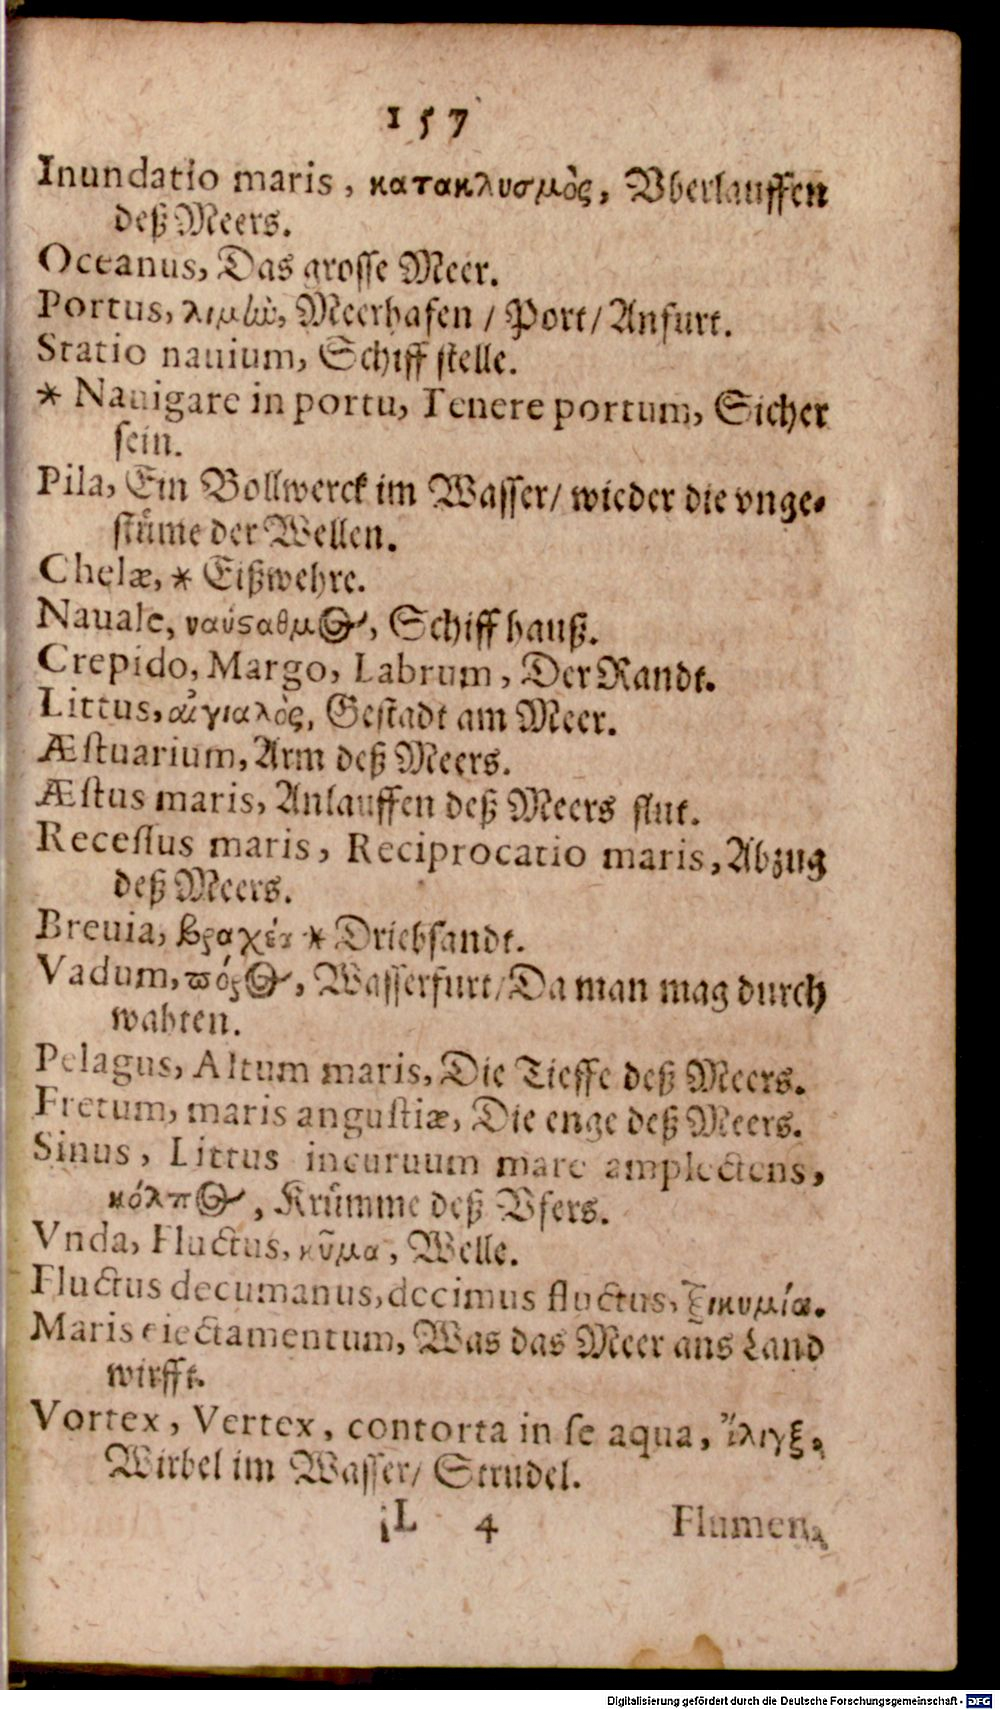 157
Inundatio maris, κατακλυσμὸς, Vberlauffen
deß Meers.
Oceanus, Das grosse Meer.
Portus, λιμὼ, Meerhafen / Port / Anfurt.
Statio nauium, Schiff stelle.
* Nauigare in portu, Tenere portum, Sicher
sein.
Pila, Ein Bollwerck im Wasser / wieder die vnge-
stüme der Wellen.
Chelæ, * Eißwehre.
Nauale, ναύϛαθμος, Schiff hauß.
Crepido, Margo, Labrum, Der Randt.
Littus, αἰγιαλὸς, Gestadt am Meer.
Æstuarium, Arm deß Meers.
Æstus maris, Anlauffen deß Meers flut.
Recessus maris, Reciprocatio maris, Abzug
deß Meers.
Breuia, βραχέα * Driebsandt.
Vadum, πόρος, Wasserfurt / Da man mag durch
wahten.
Pelagus, Altum maris, Die Tieffe deß Meers.
Fretum, maris angustiæ, Die enge deß Meers.
Sinus, Littus incuruum mare amplectens,
κόλπος, Krümme deß Vfers.
Vnda, Fluctus, κῦμα, Welle.
Fluctus decumanus, decimus fluctus, ξικυμία.
Maris eiectamentum, Was das Meer ans Land
wirfft.
Vortex, Vertex, contorta in se aqua, ἴλιγξ,
Wirbel im Wasser / Strudel.
L 4 Flumen,
Digitalisierung gefördert durch die Deutsche Forschungsgemeinschaft - DFG